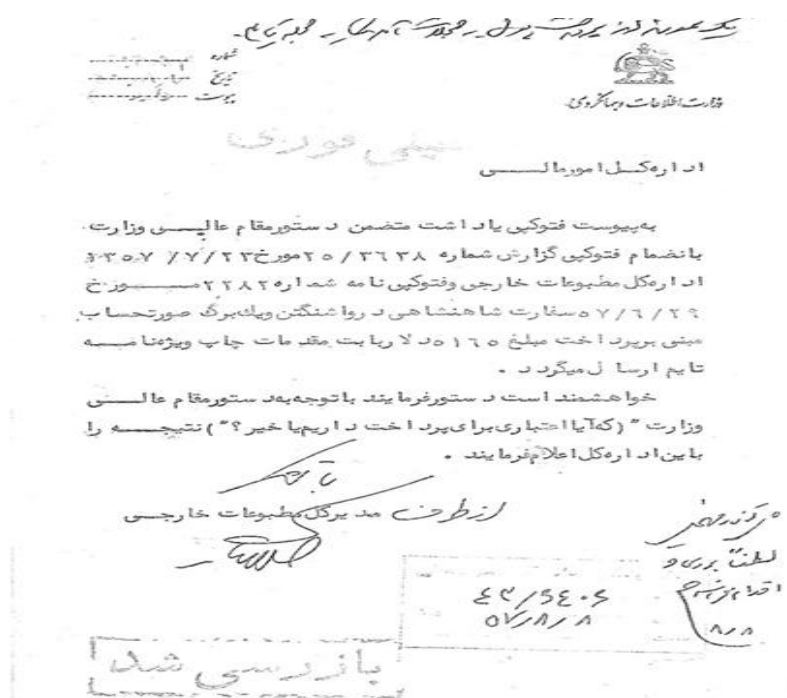 شماره
تاریخ
پیوست
وزارت اطلاعات و جهانگردی
خیلی فوری
اداره کل امور مالی
به پیوست فتوکپی یادداشت متضمن دستور مقام عالی وزارت
بانضمام فتوکپی گزارش شماره ۲۵/۳۶۳۸ مورخ ۲۳/۷/۲۵۳۷
اداره کل مطبوعات خارجی و فتوکپی نامه شماره ۲۲۸۲ مورخ
۵۷/۶/۲۹ سفارت شاهنشاهی در واشنگتن و یک برگ صورتحساب
مبنی بر پرداخت مبلغ ۵۱۶۵ دلار بابت مقدمات چاپ ویژه نامه
تایم ارسال میگردد .
خواهشمند است دستور فرمایند با توجه به دستور مقام عالی
وزارت " (که آیا اعتباری برای پرداخت داریم یا خیر ؟ ") نتیجه را
باین اداره کل اعلام فرمایند .
با تشکر
از طرف مدیر کل مطبوعات خارجی
لطفاً بررسی و
اقدام فرمائید
۸/۸
۵۷/۸/۸
بازرسی شد